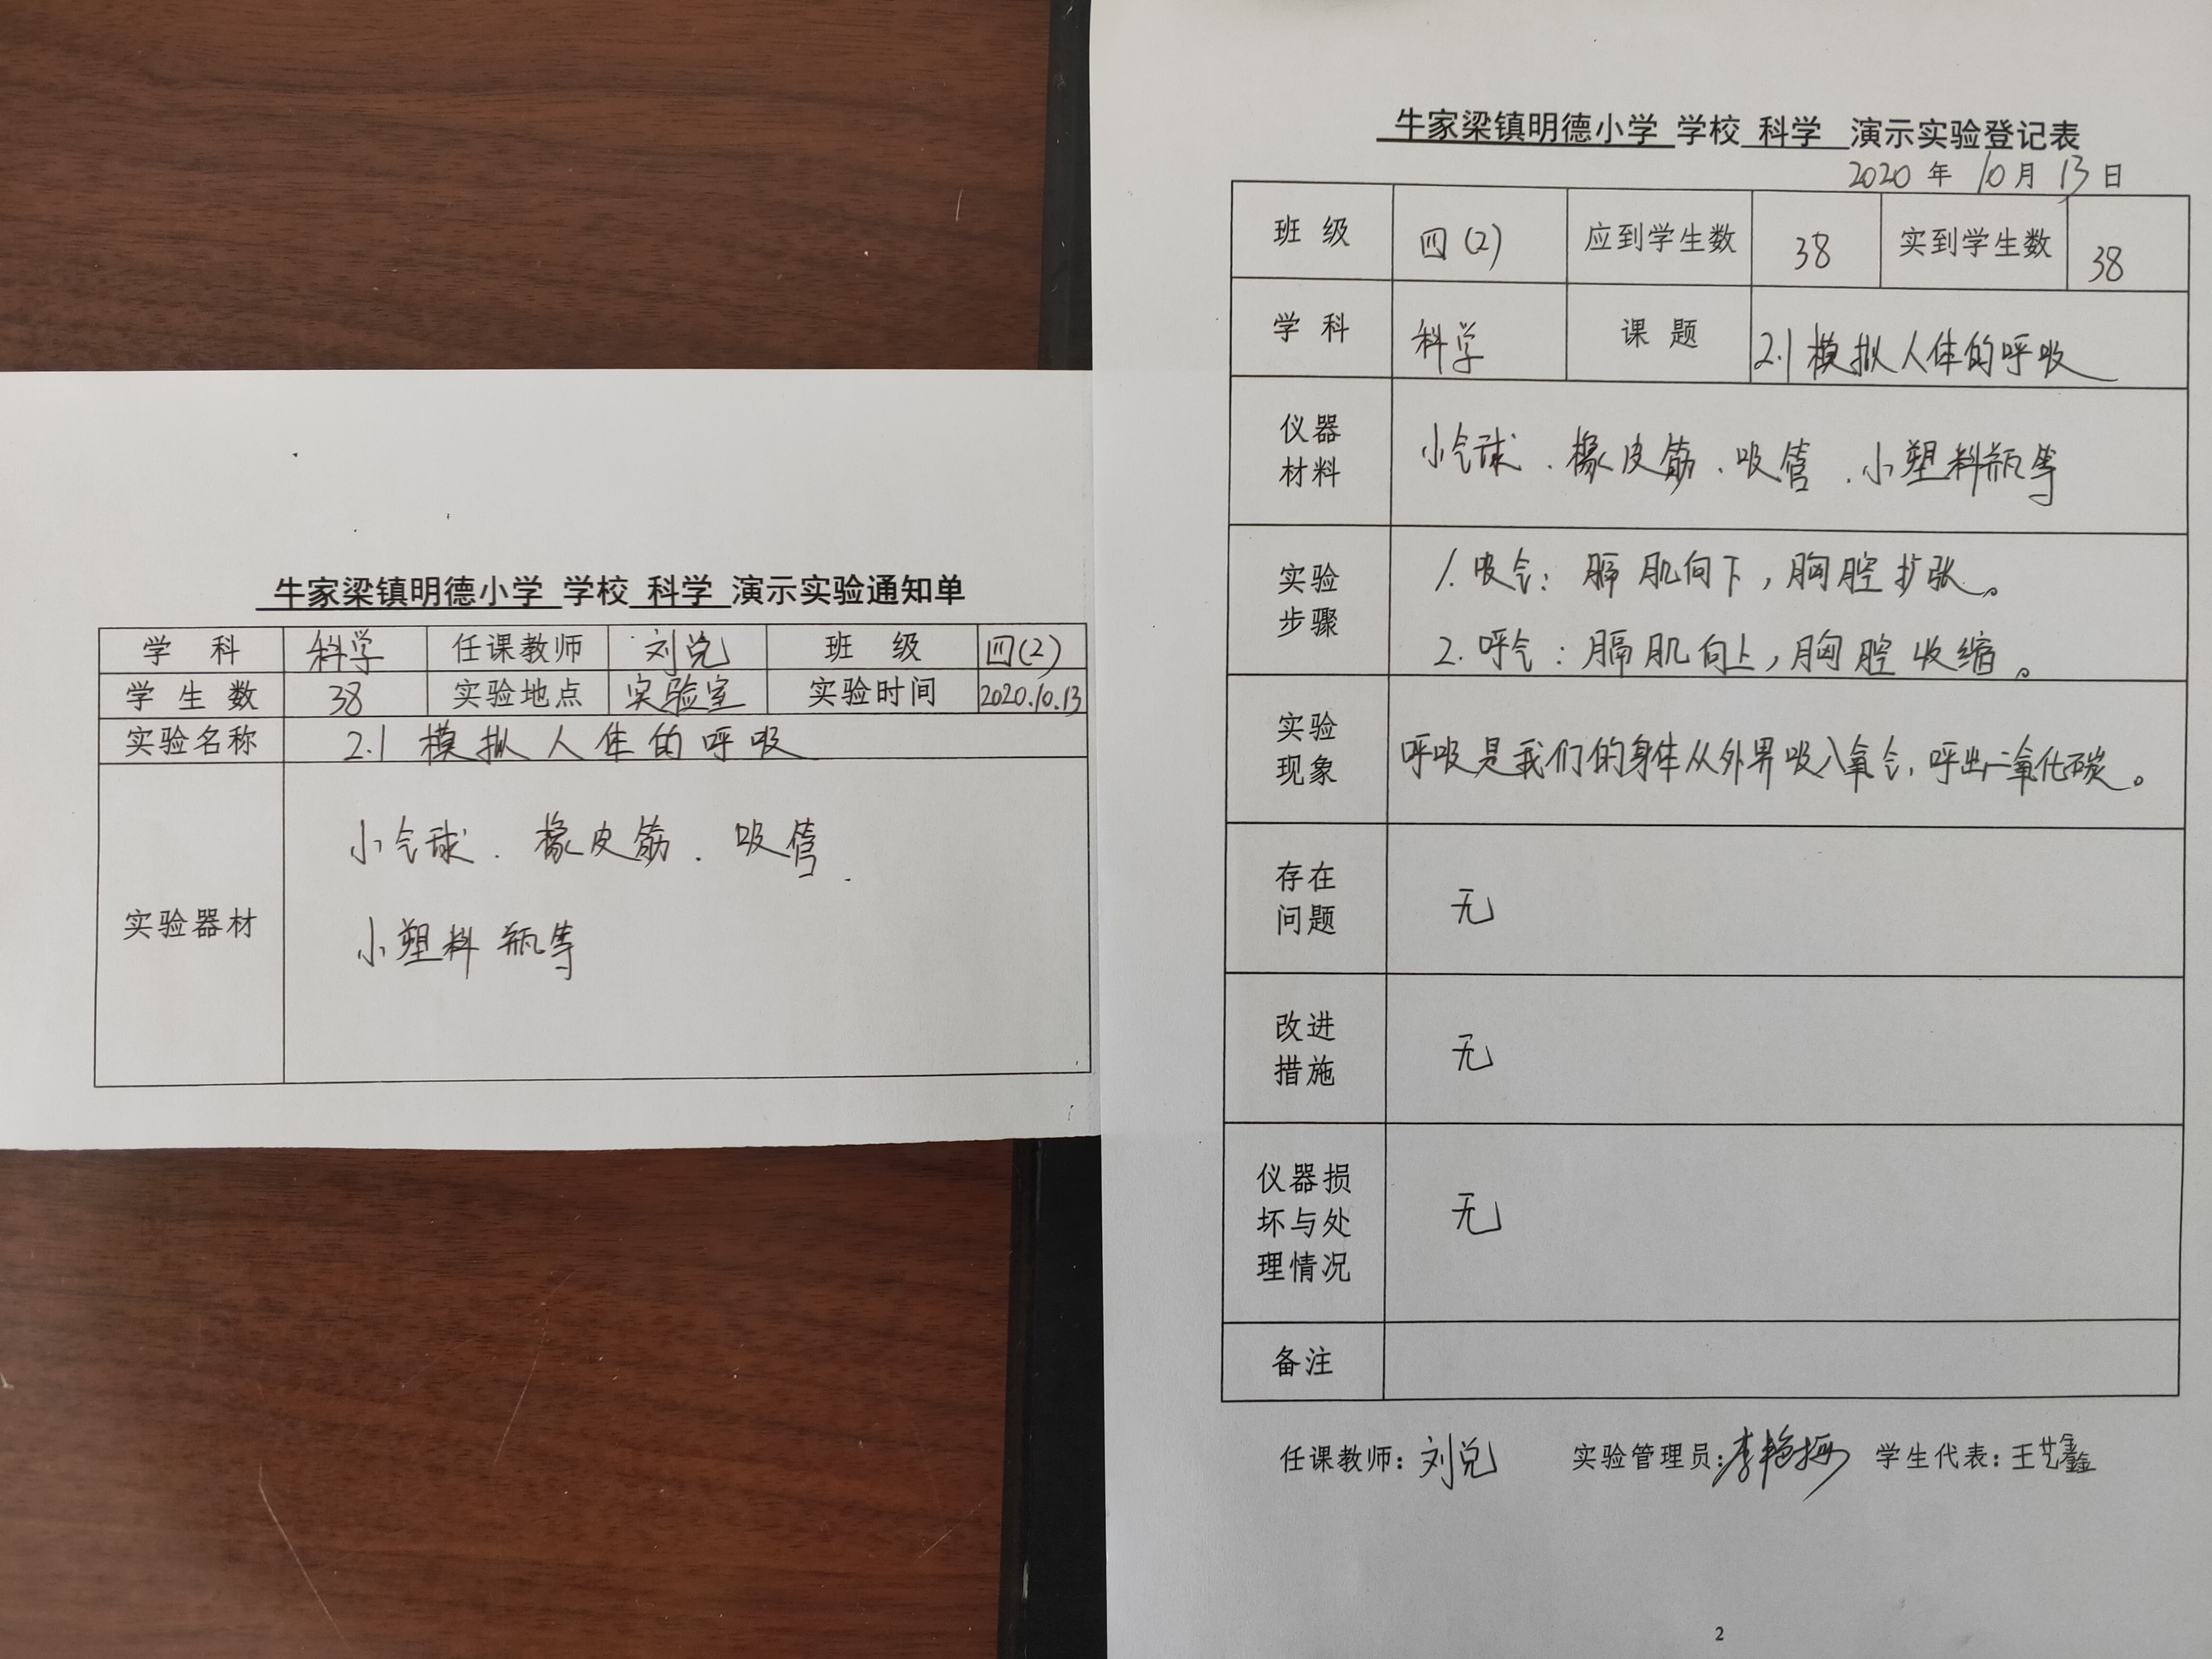 牛家梁镇明德小学 学校 科学 演示实验通知单
学 科 科学 任课教师 刘兑 班 级 四(2)
学 生 数 38 实验地点 实验室 实验时间 2020.10.13
实验名称 2.1 模拟人体的呼吸
实验器材
小气球、橡皮筋、吸管、
小塑料瓶等
牛家梁镇明德小学 学校 科学 演示实验登记表
2020 年 10 月 13 日
班 级 四(2) 应到学生数 38 实到学生数 38
学 科 科学 课 题 2.1 模拟人体的呼吸
仪器
材料
小气球、橡皮筋、吸管、小塑料瓶等
实验
步骤
1. 吸气：膈肌向下，胸腔扩张。
2. 呼气：膈肌向上，胸腔收缩。
实验
现象
呼吸是我们的身体从外界吸入氧气，呼出二氧化碳。
存在
问题
无
改进
措施
无
仪器损
坏与处
理情况
无
备注
任课教师：刘兑 实验管理员： 学生代表：王艺鑫
2